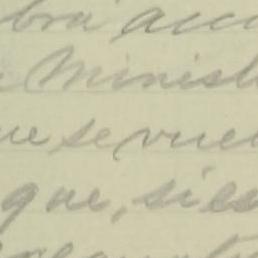 bra acc
Minist
ue se vuel
que, si es